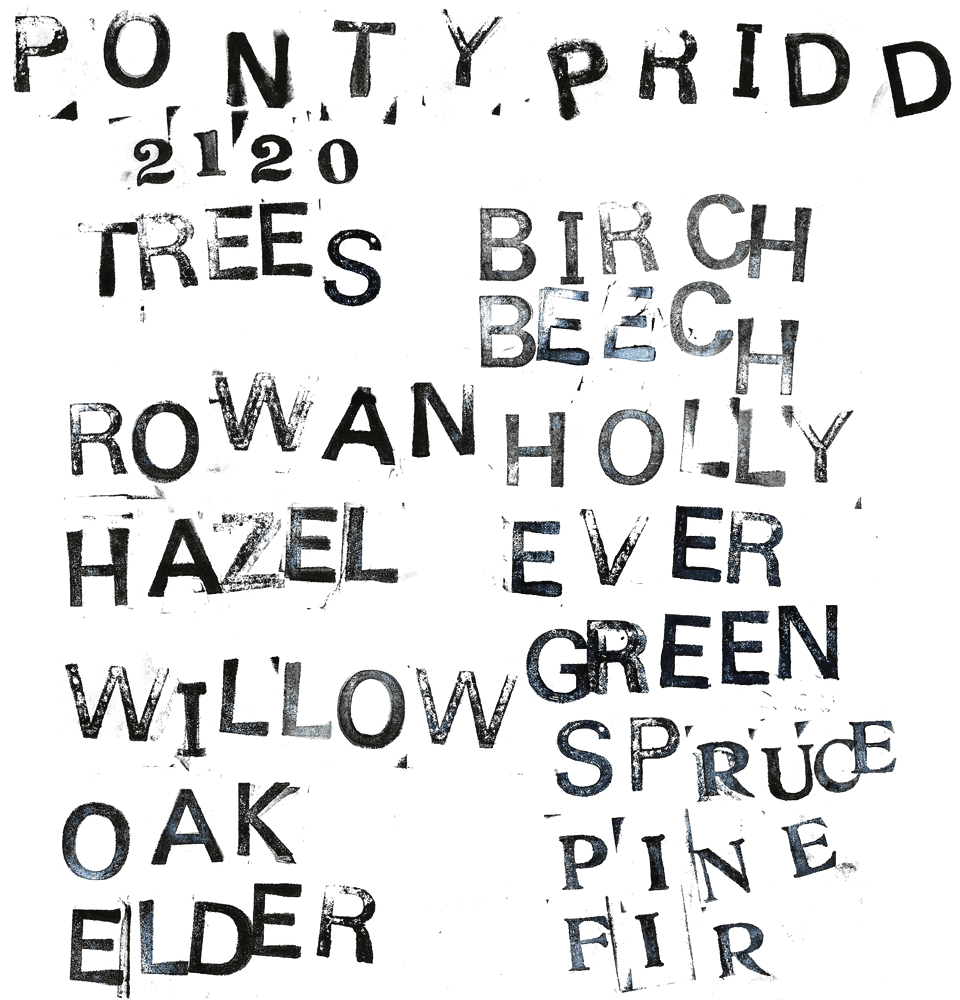 PONTYPRIDD
2120
TREES
ROWAN
HAZEL
WILLOW
OAK
ELDER
BIRCH
BEECH
HOLLY
EVER
GREEN
SPRUCE
PINE
FIR